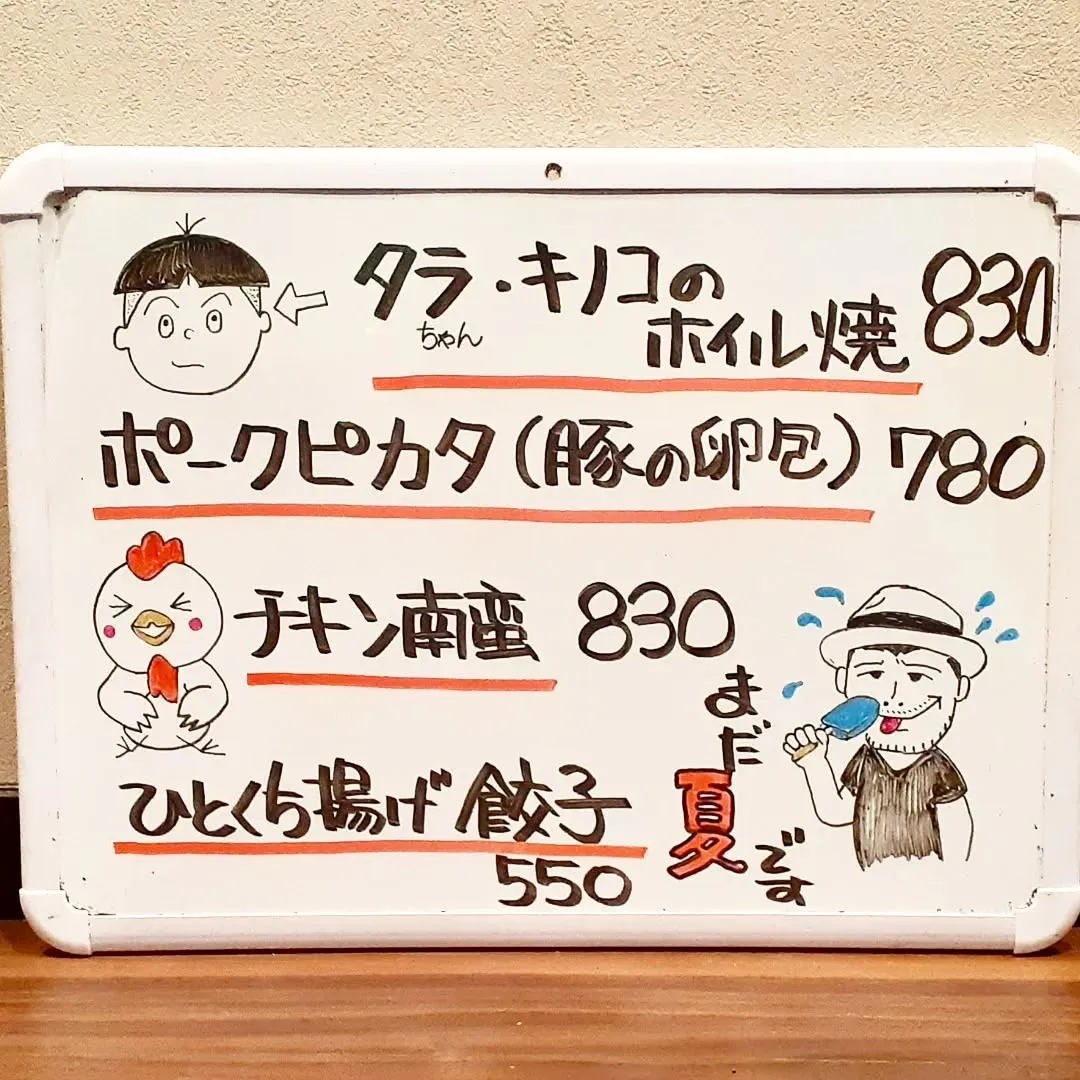 タラ・キノコの
ちゃん
ホイル焼 830
ポークピカタ(豚の卵包) 780
チキン南蛮 830
ひとくち揚げ餃子
550
まだ
夏
です